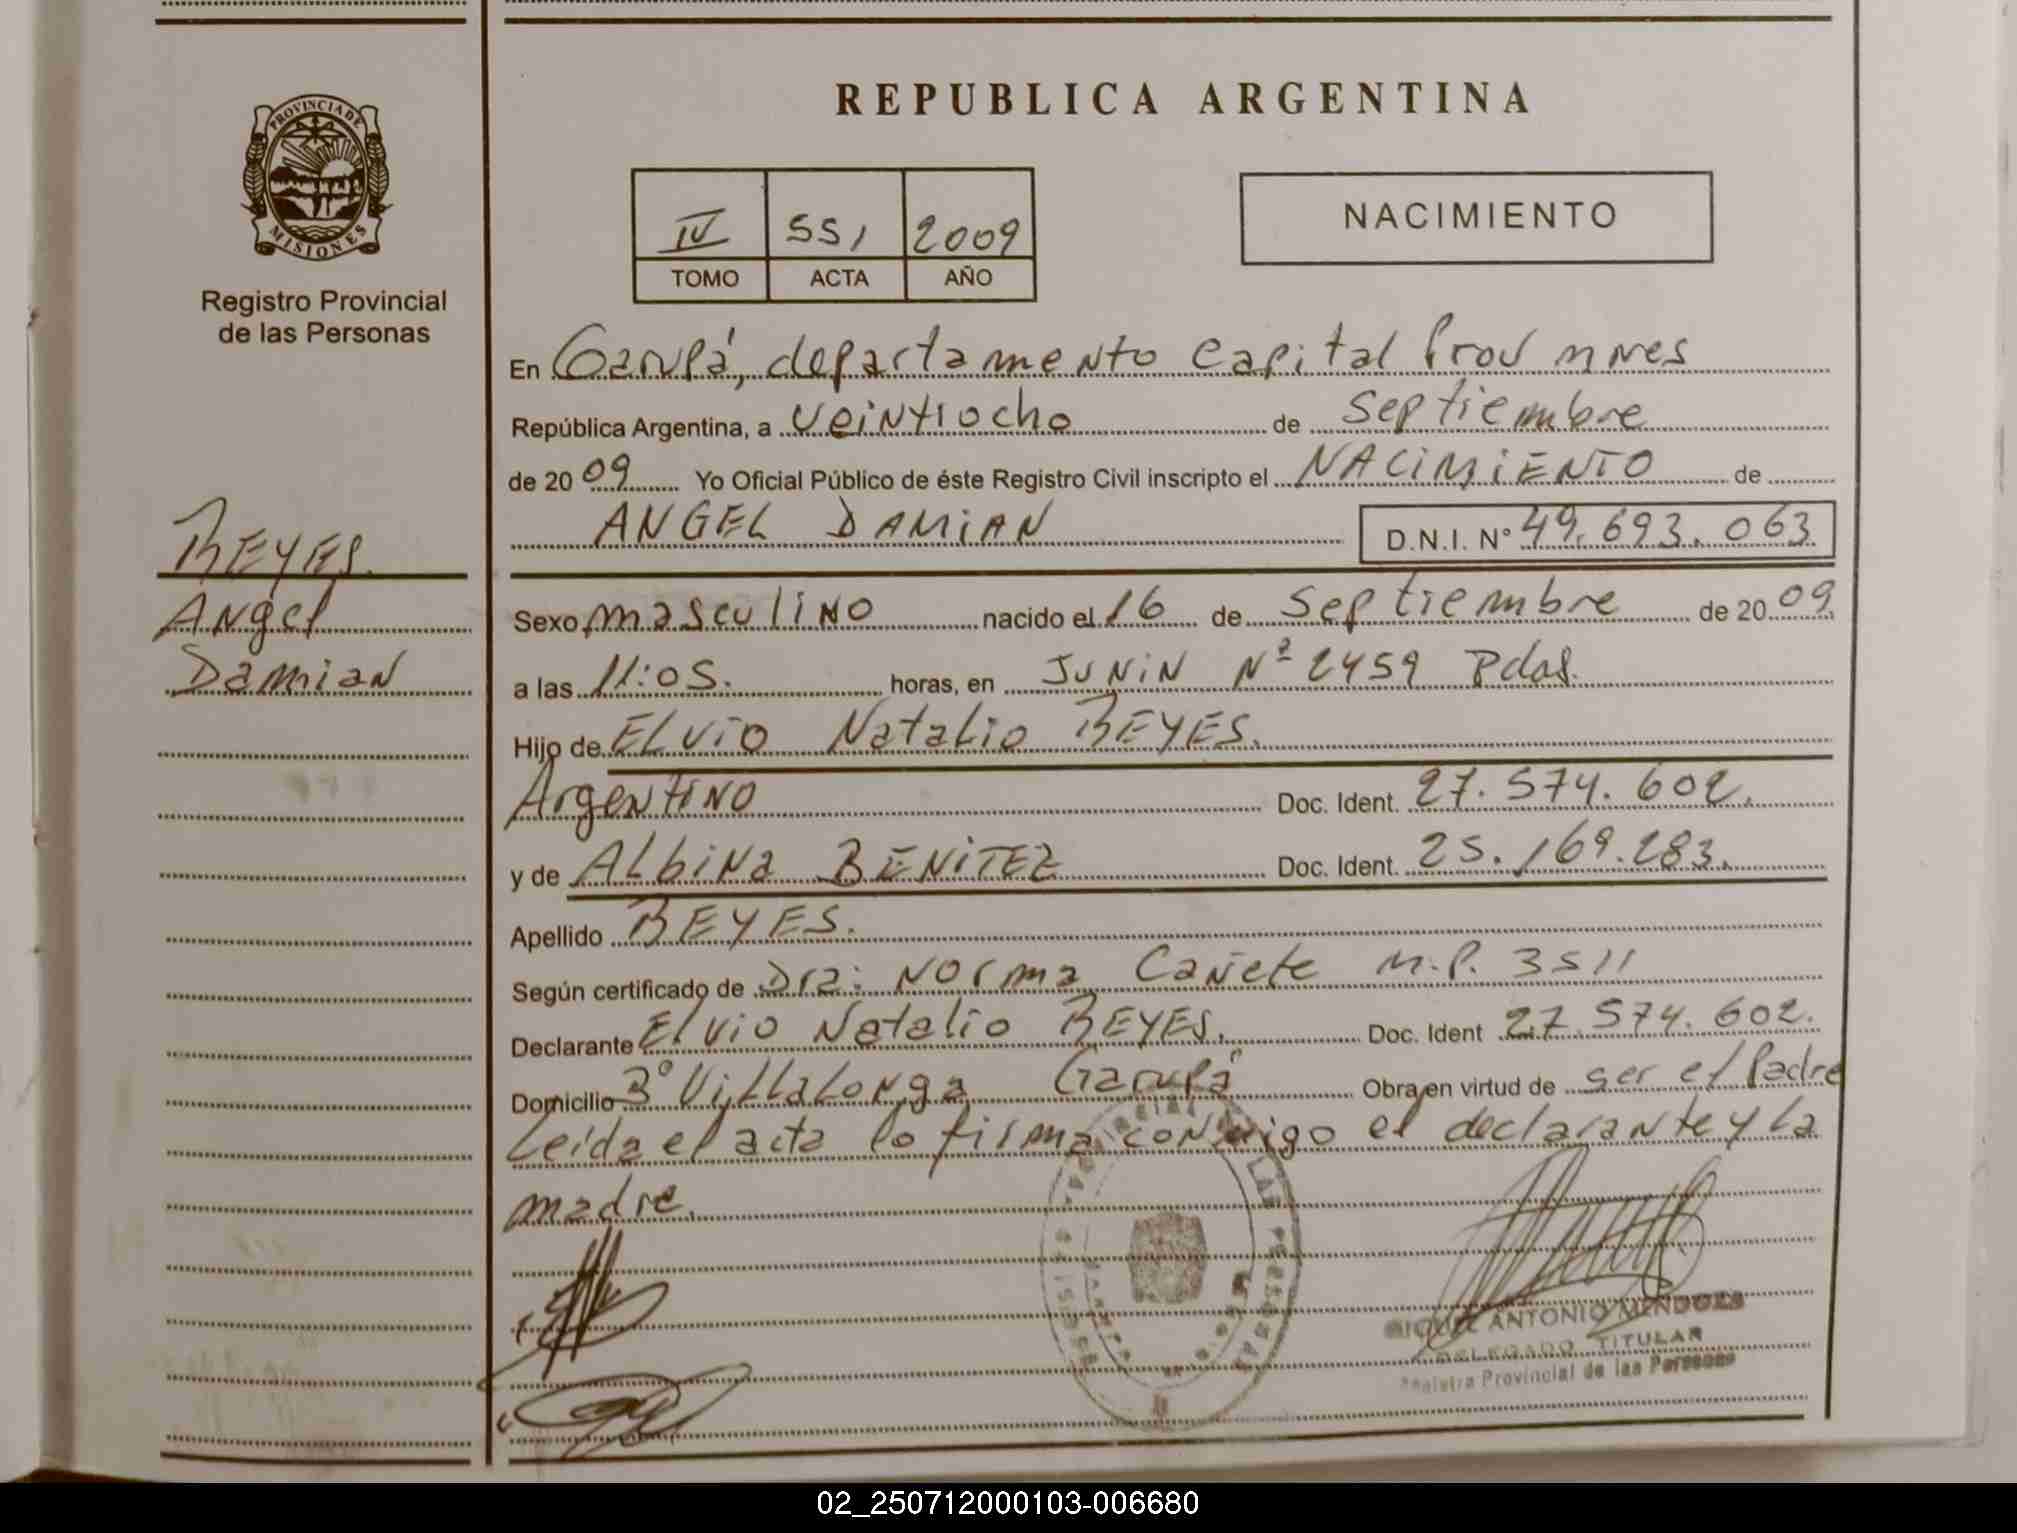 PROVINCIA DE
MISIONES
Registro Provincial
de las Personas
REYES.
Angel
Damian
REPUBLICA ARGENTINA
IV 551 2009
TOMO ACTA AÑO
NACIMIENTO
En Garupá, departamento Capital Prov mnes
República Argentina, a veintiocho de septiembre
de 20 09 Yo Oficial Público de éste Registro Civil inscripto el NACIMIENTO de
ANGEL DAMIAN D.N.I. Nº 49.693.063
Sexo masculino nacido el 16 de septiembre de 20 09
a las 11:05. horas, en JUNIN Nº 2459 Pdas.
Hijo de ELVIO Natalio REYES.
Argentino Doc. Ident. 27.574.602.
y de ALbiNa BENITEZ Doc. Ident. 25.169.283.
Apellido REYES.
Según certificado de Dra: Norma Cañete M.P. 3511
Declarante Elvio Natalio REYES. Doc. Ident 27.574.602.
Domicilio Bº Villalonga Garupá Obra en virtud de ser el Padre
Leída el acta lo firma conmigo el declarante y la
madre.
MIGUEL ANTONIO MENDOZA
DELEGADO TITULAR
Registro Provincial de las Personas
02_250712000103-006680